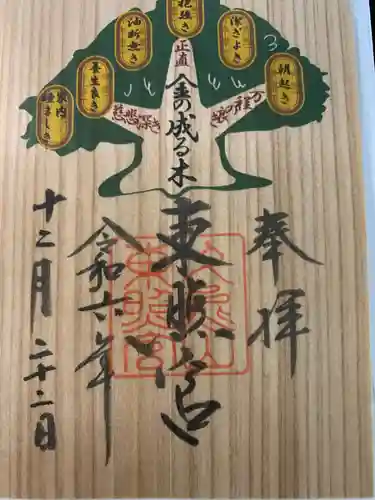 朝起き
潔ぎよき
辛抱強き
油断無き
養生良き
家内睦まじき
正直
慈悲深き
万程の良き
金の成る木
奉拝
東照宮
令和六年
十二月二十二日